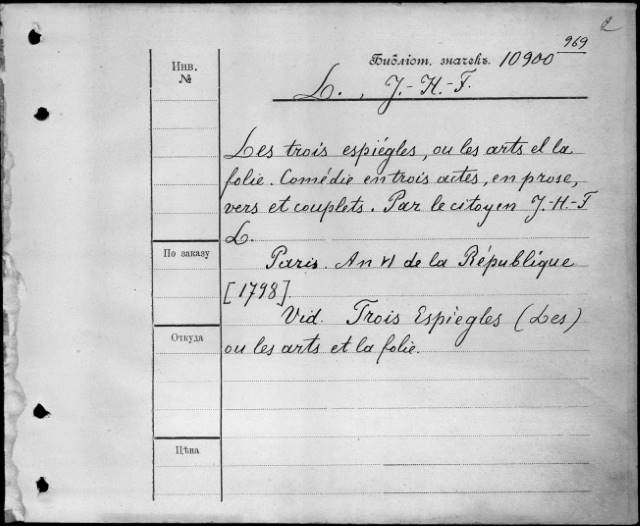 2
969
Библіот. значекъ. 10900
Инв.
№
L., J.-H.-F.
Les trois espiégles, ou les arts et la
folie. Comédie en trois actes, en prose,
vers et couplets. Par le citoyen J.-H.-F
L.
По заказу
Paris. An VI de la République
[1798].
Vid. Trois Espiegles (Les)
Откуда
ou les arts et la folie.
Цѣна